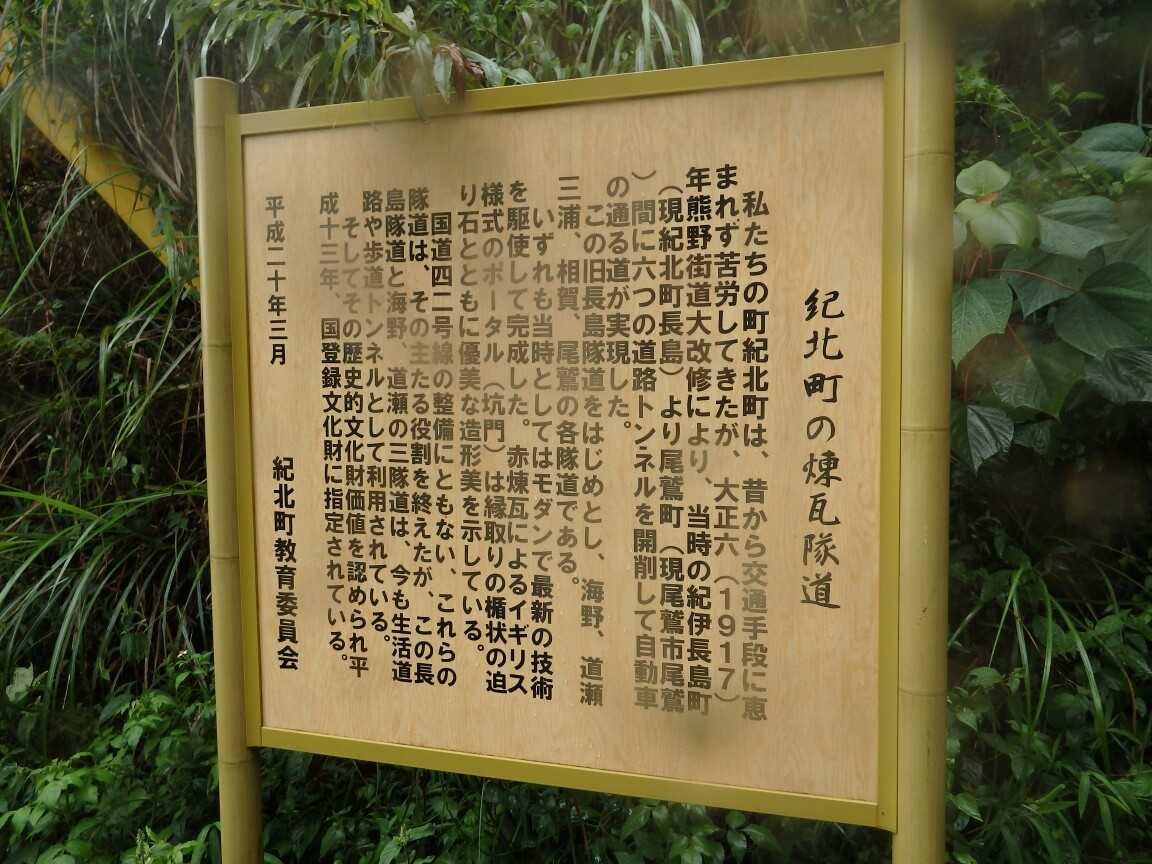 紀北町の煉瓦隧道
私たちの町紀北町は、昔から交通手段に恵
まれず苦労してきたが、大正六（1917）
年熊野街道大改修により、当時の紀伊長島町
（現紀北町長島）より尾鷲町（現尾鷲市尾鷲
）間に六つの道路トンネルを開削して自動車
の通る道が実現した。
この旧長島隧道をはじめとし、海野、道瀬
三浦、相賀、尾鷲の各隧道である。
いずれも当時としてはモダンで最新の技術
を駆使して完成した。赤煉瓦によるイギリス
様式のポータル（坑門）は縁取りの楯状の迫
り石とともに優美な造形美を示している。
国道四二号線の整備にともない、これらの
隧道は、その主たる役割を終えたが、この長
島隧道と海野、道瀬の三隧道は、今も生活道
路や歩道トンネルとして利用されている。
そしてその歴史的文化財価値を認められ平
成十三年、国登録文化財に指定されている。
平成二十年三月　紀北町教育委員会